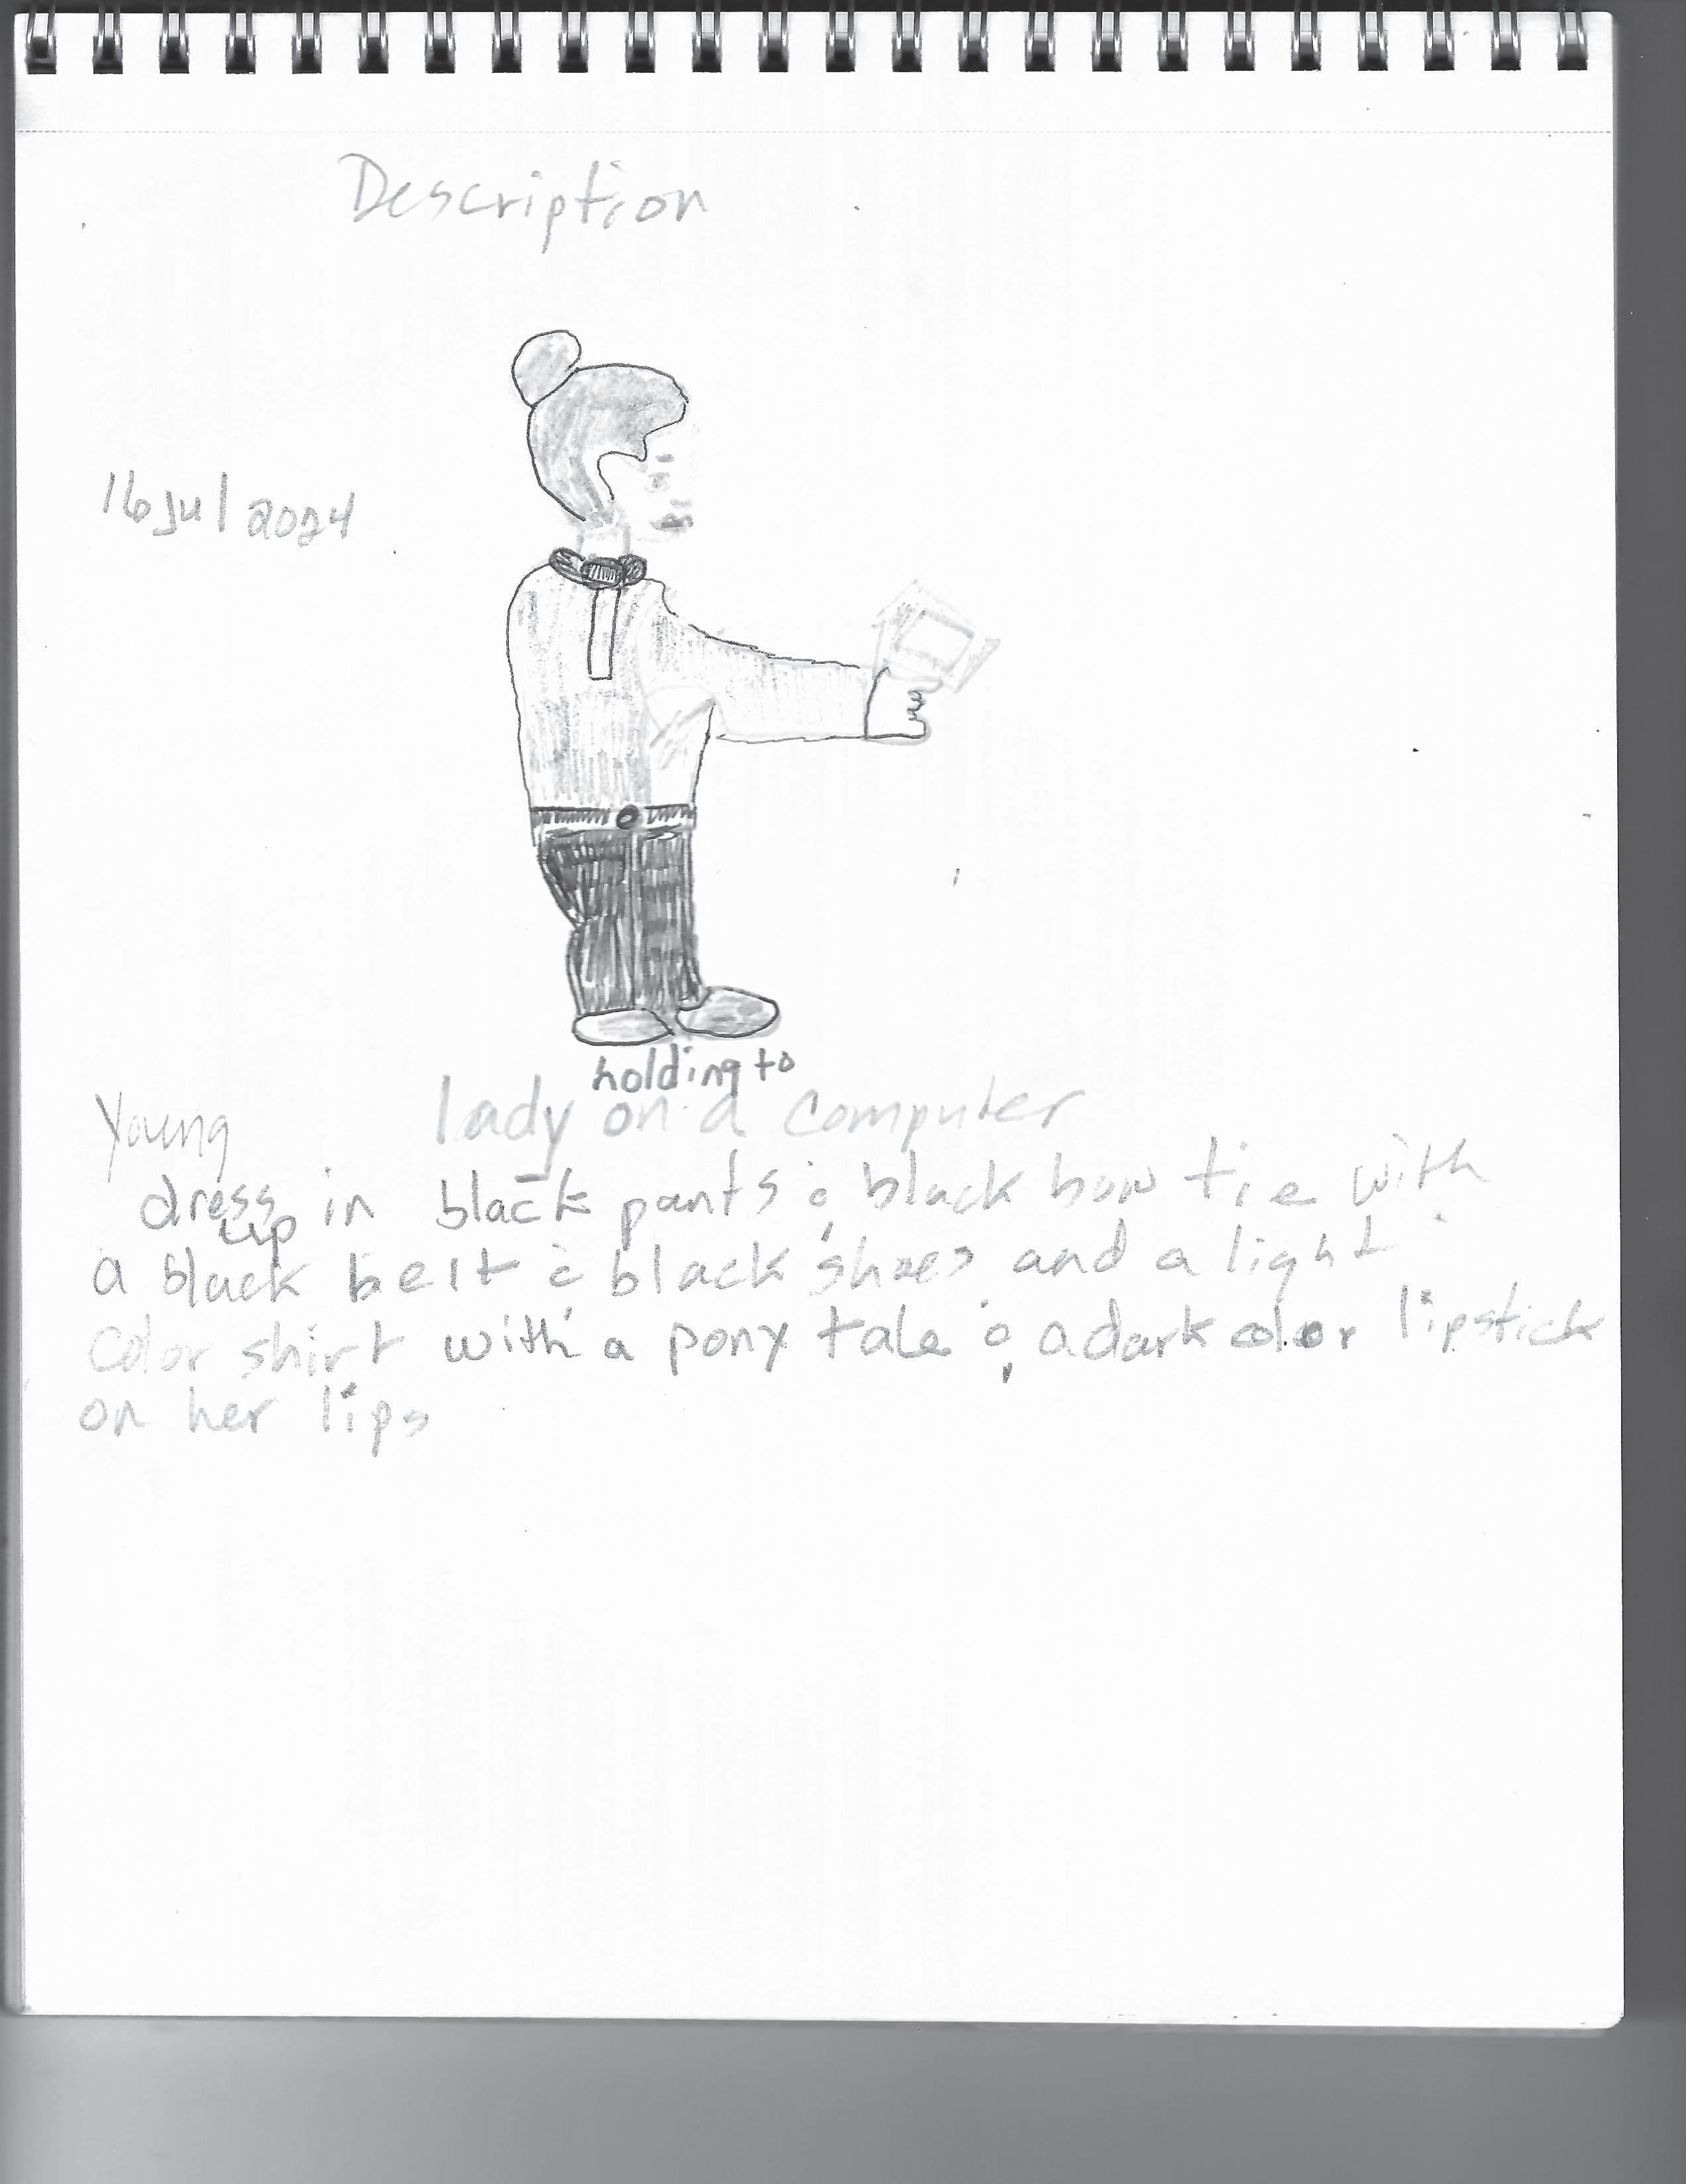 Description
16 Jul 2024
holding to
Young lady on a computer
dress up in black pants & black bow tie with
a black belt & black shoes and a light
color shirt with a pony tale & a dark color lipstick
on her lips